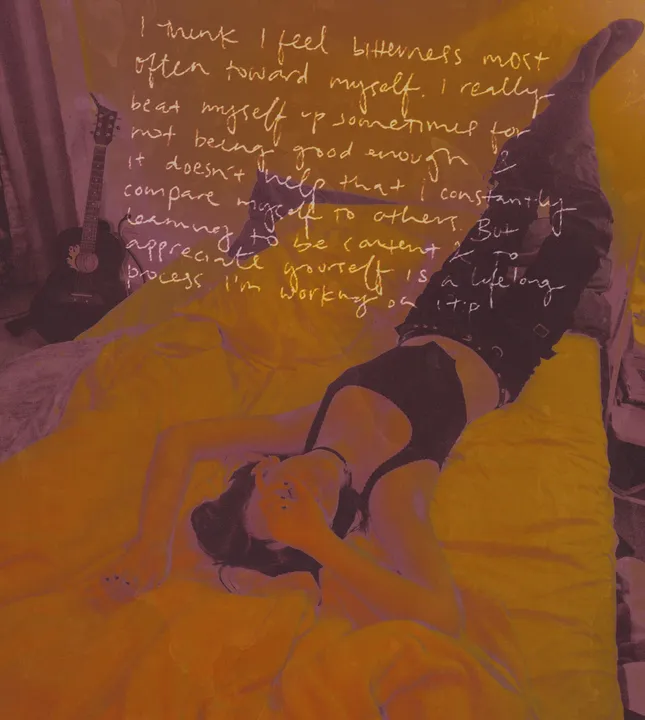 I think I feel bitterness most
often toward myself. I really
beat myself up sometimes for
not being good enough &
it doesn't help that I constantly
compare myself to others. But
learning to be content & to
appreciate yourself is a lifelong
process I'm working on